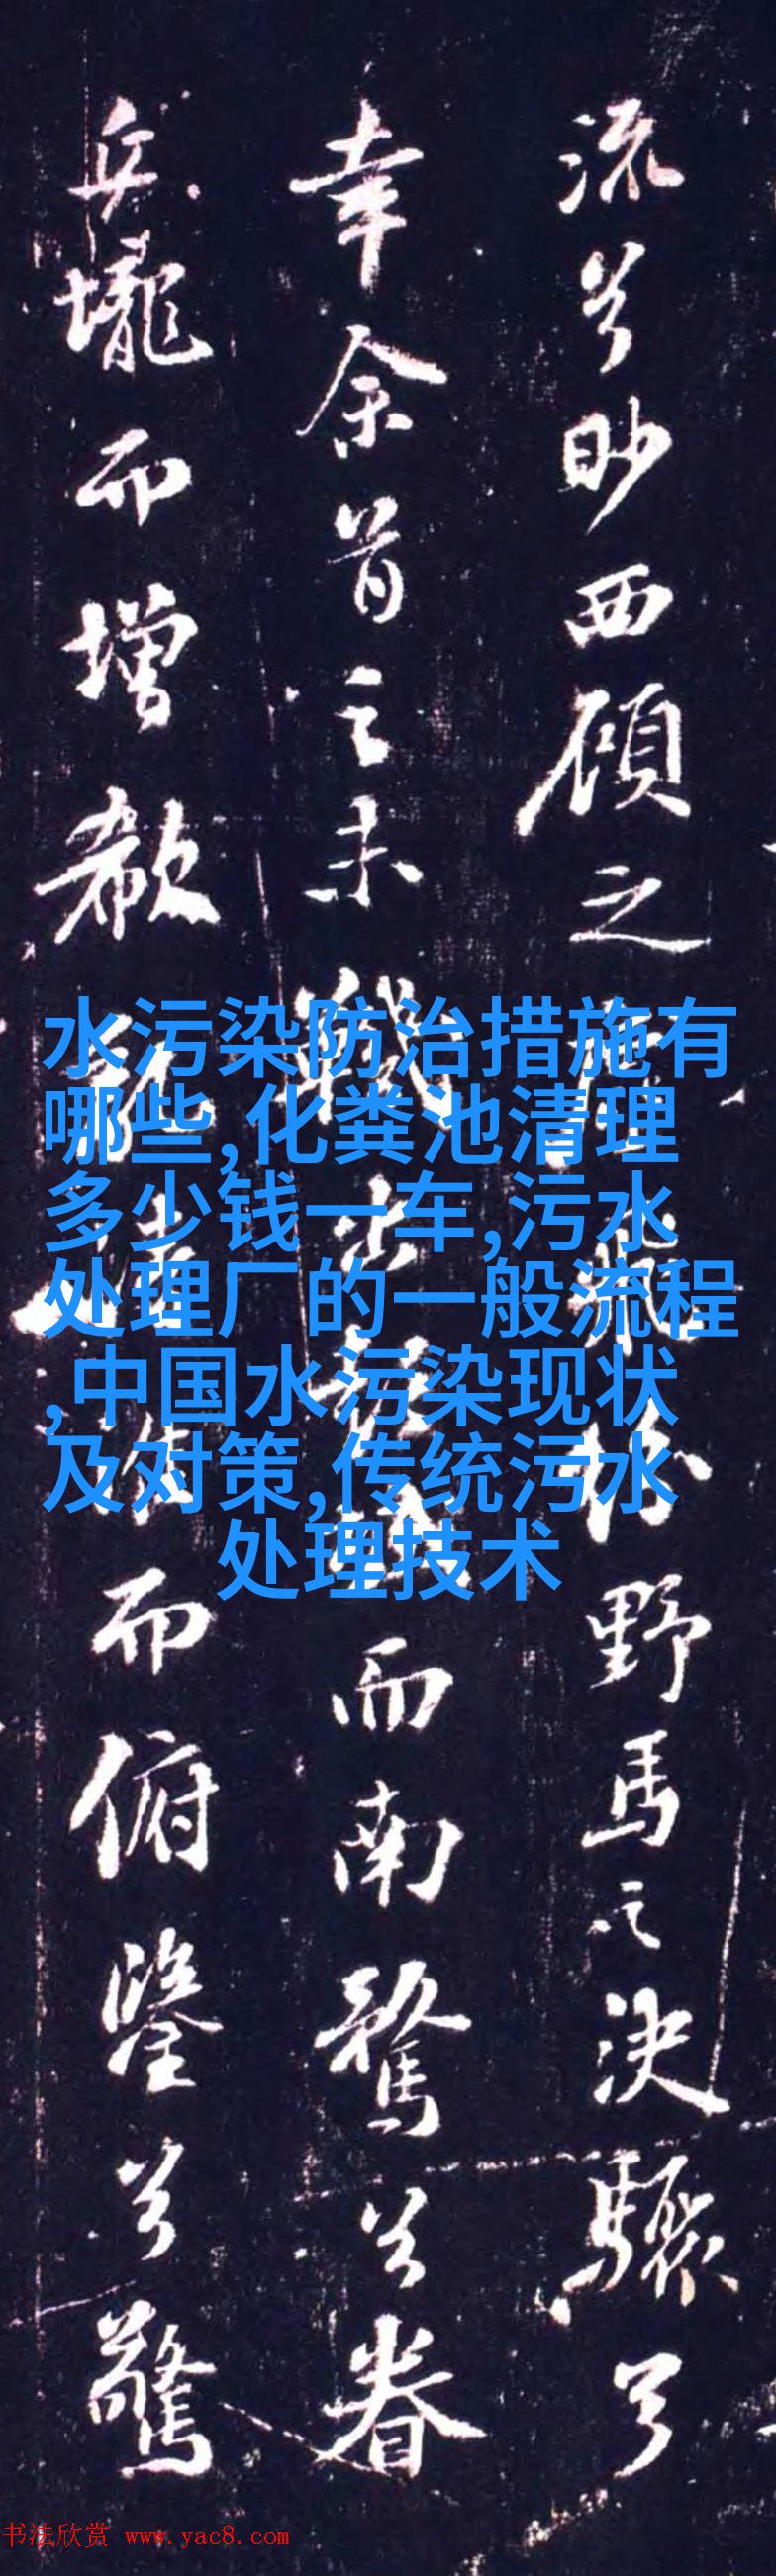 流兮眇西顾之
野馬之決驟兮
幸余首之未
而南騖兮眷
丘壠而增欷
而俯鑒兮驚
水污染防治措施有
哪些,化粪池清理
多少钱一车,污水
处理厂的一般流程
,中国水污染现状
及对策,传统污水
处理技术
书法欣赏 www.yac8.com